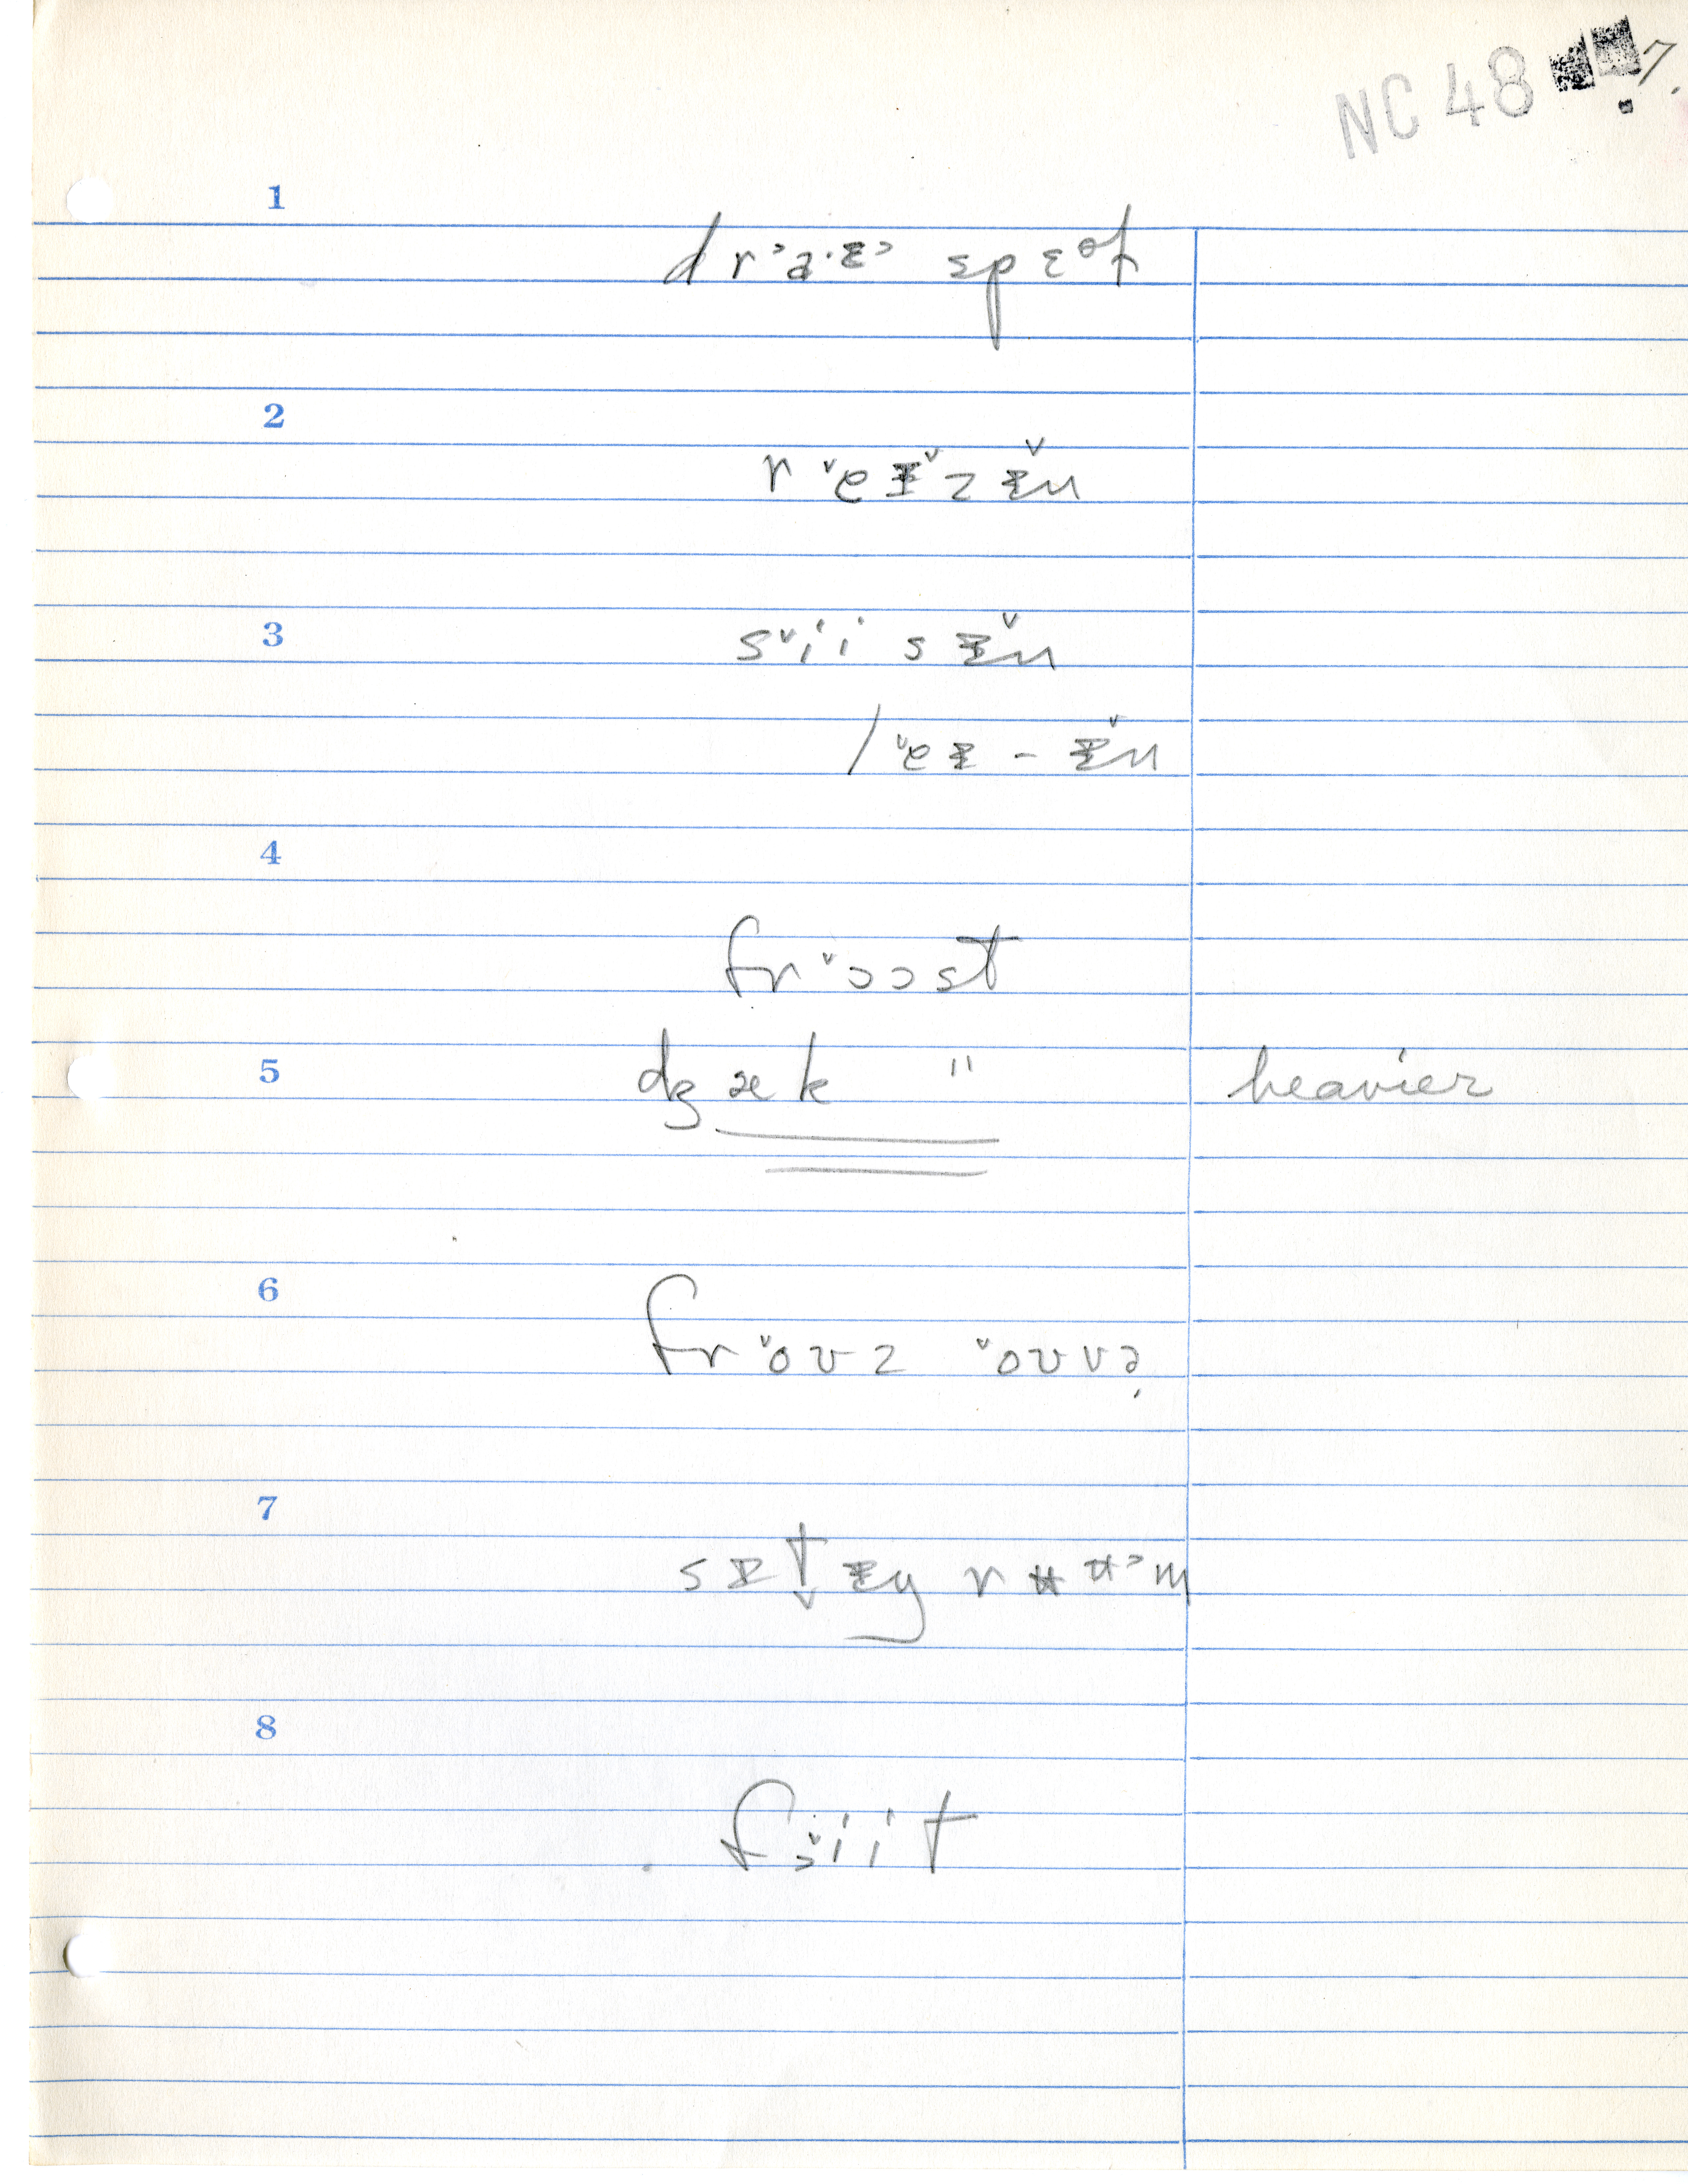 NC 48 7.
1
dr˃a·ɛ˃ spɛəl
2
r˅eɪ˅zɪ̌n
3
s˅ii sɪ̌n
l˅eɪ - ɪ̌n
4
fr˅ɔɔst
5 dʒæk " heavier
6
fr˅oʊz ˅oʊvə
7
8
f˅iit